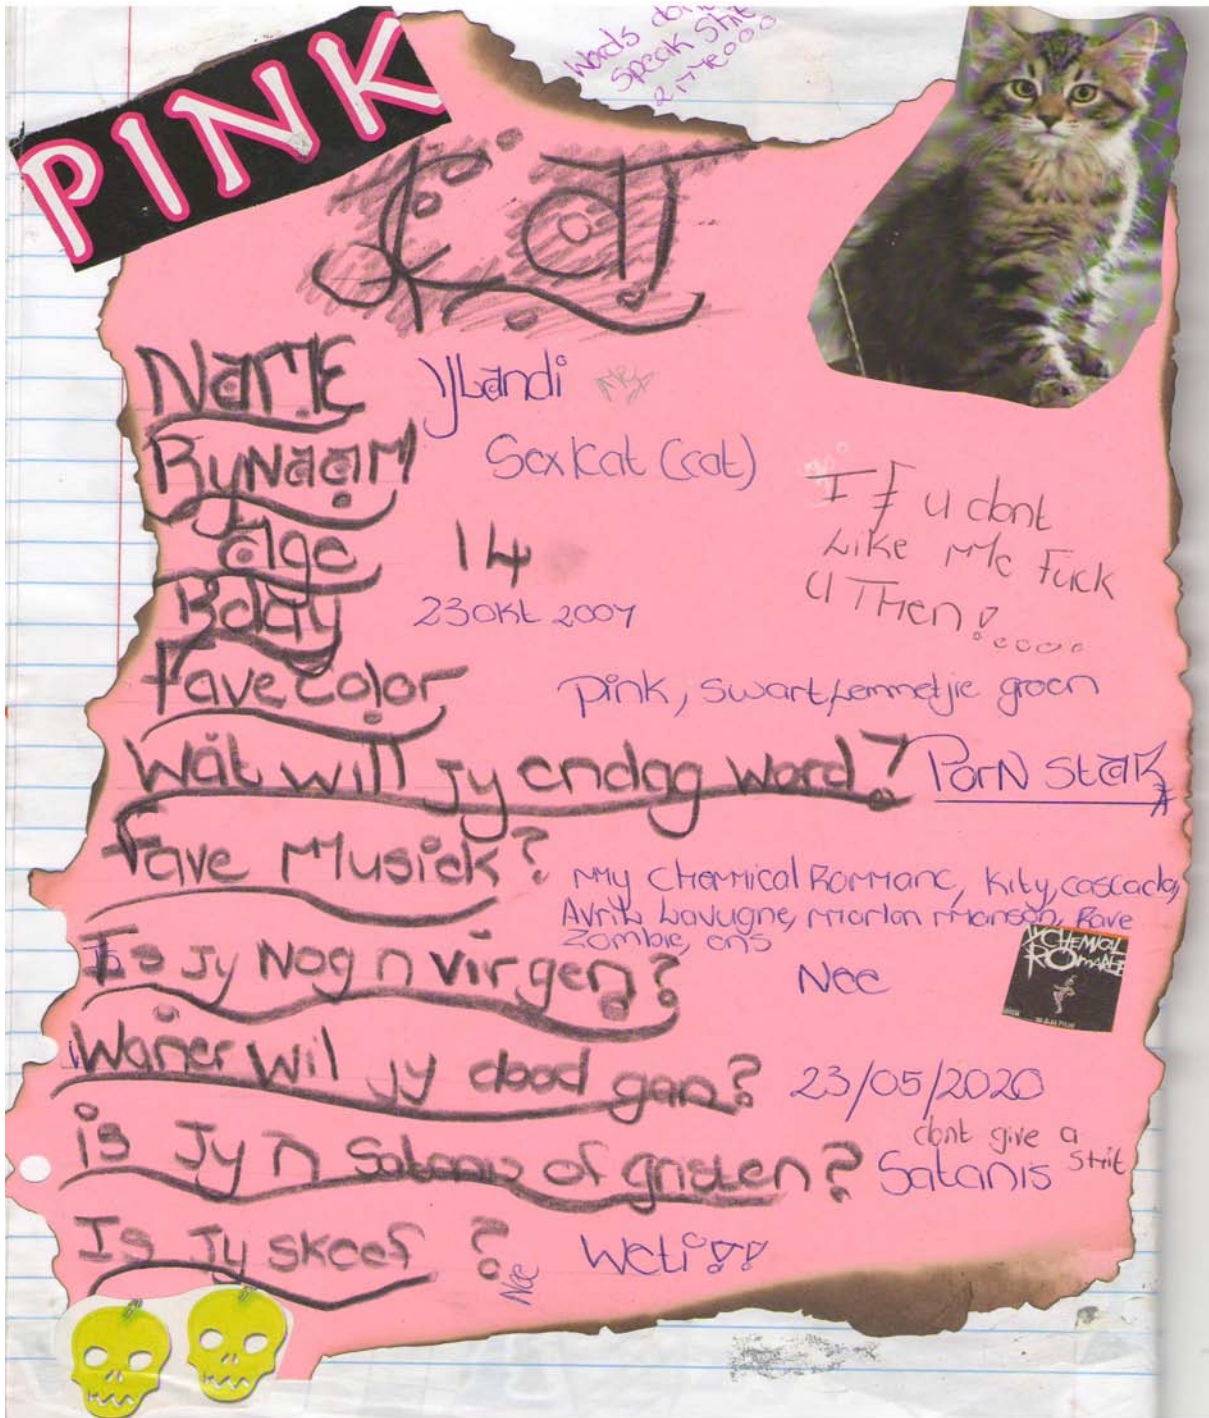 Words dont
Speak Shit
PINK
Kat
Name YLandi
Bynaam Sexkat (cat)
If u dont
Like Me Fuck
U Then!.....
age 14
Bday 23 Okt 2007
Fave color pink, swart, Lemmetjie groen
Wat will jy endag word? PorN St@R
Fave Musick?
My Chemical Rommanc, Kity, cascada,
Avril Lavugne, Marlan Manson, Rave
Zombie, ens
MY CHEMICAL
ROMANCE
Is Jy Nog n virgen? Nee
Waner wil jy dood gan? 23/05/2020
dont give a
shit
is Jy n Satanis of gristen? Satanis
Is Jy skeef? Nee Weti!!